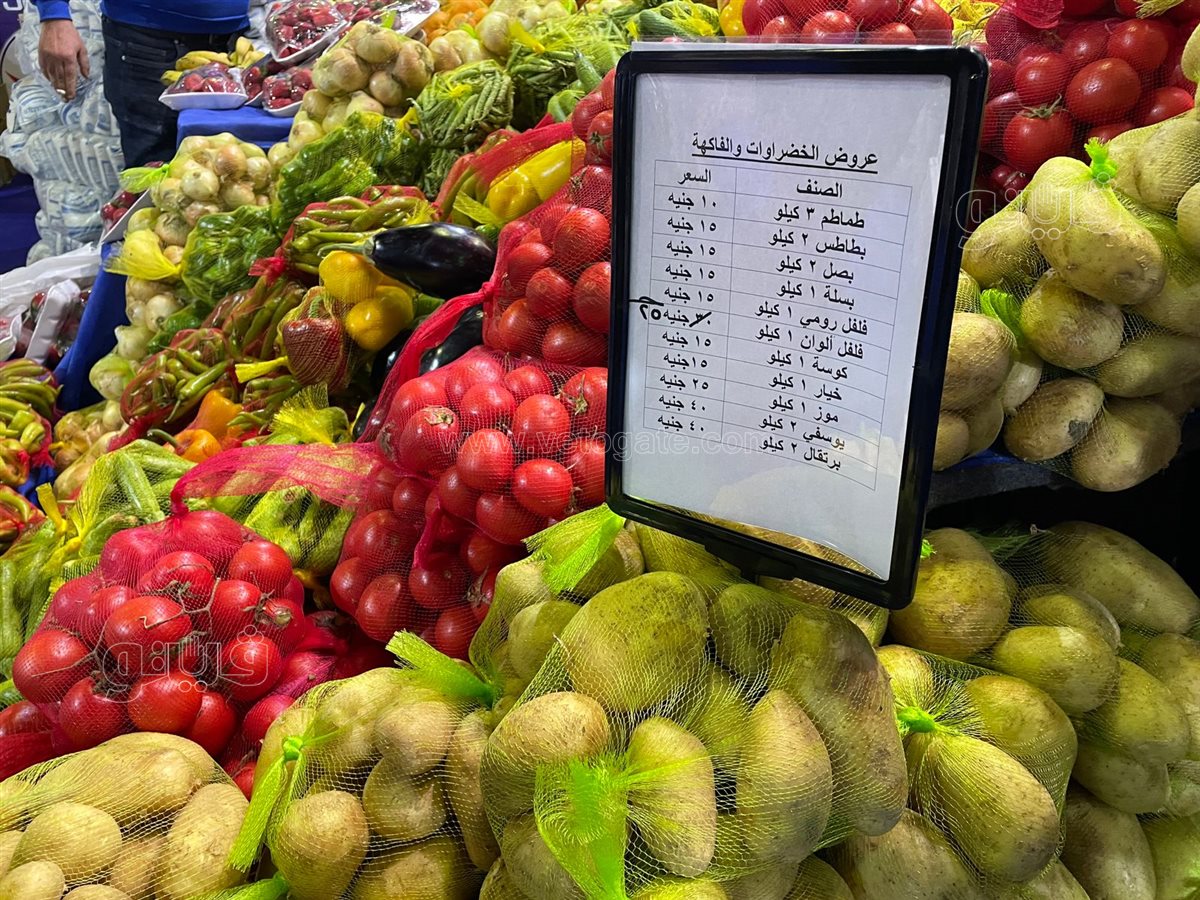 عروض الخضراوات والفاكهة
الصنف السعر
طماطم ٣ كيلو ١٠ جنيه
بطاطس ٢ كيلو ١٥ جنيه
بصل ٢ كيلو ١٥ جنيه
بسلة ١ كيلو ١٥ جنيه
فلفل رومي ١ كيلو ١٥ جنيه
فلفل ألوان ١ كيلو ٣٠ جنيه ٢٥
كوسة ١ كيلو ١٥ جنيه
خيار ١ كيلو ١٥جنيه
موز ١ كيلو ٢٥ جنيه
يوسفي ٢ كيلو ٤٠ جنيه
برتقال ٢ كيلو ٤٠ جنيه
www.vetogate.com
ڤيتو
ڤيتو